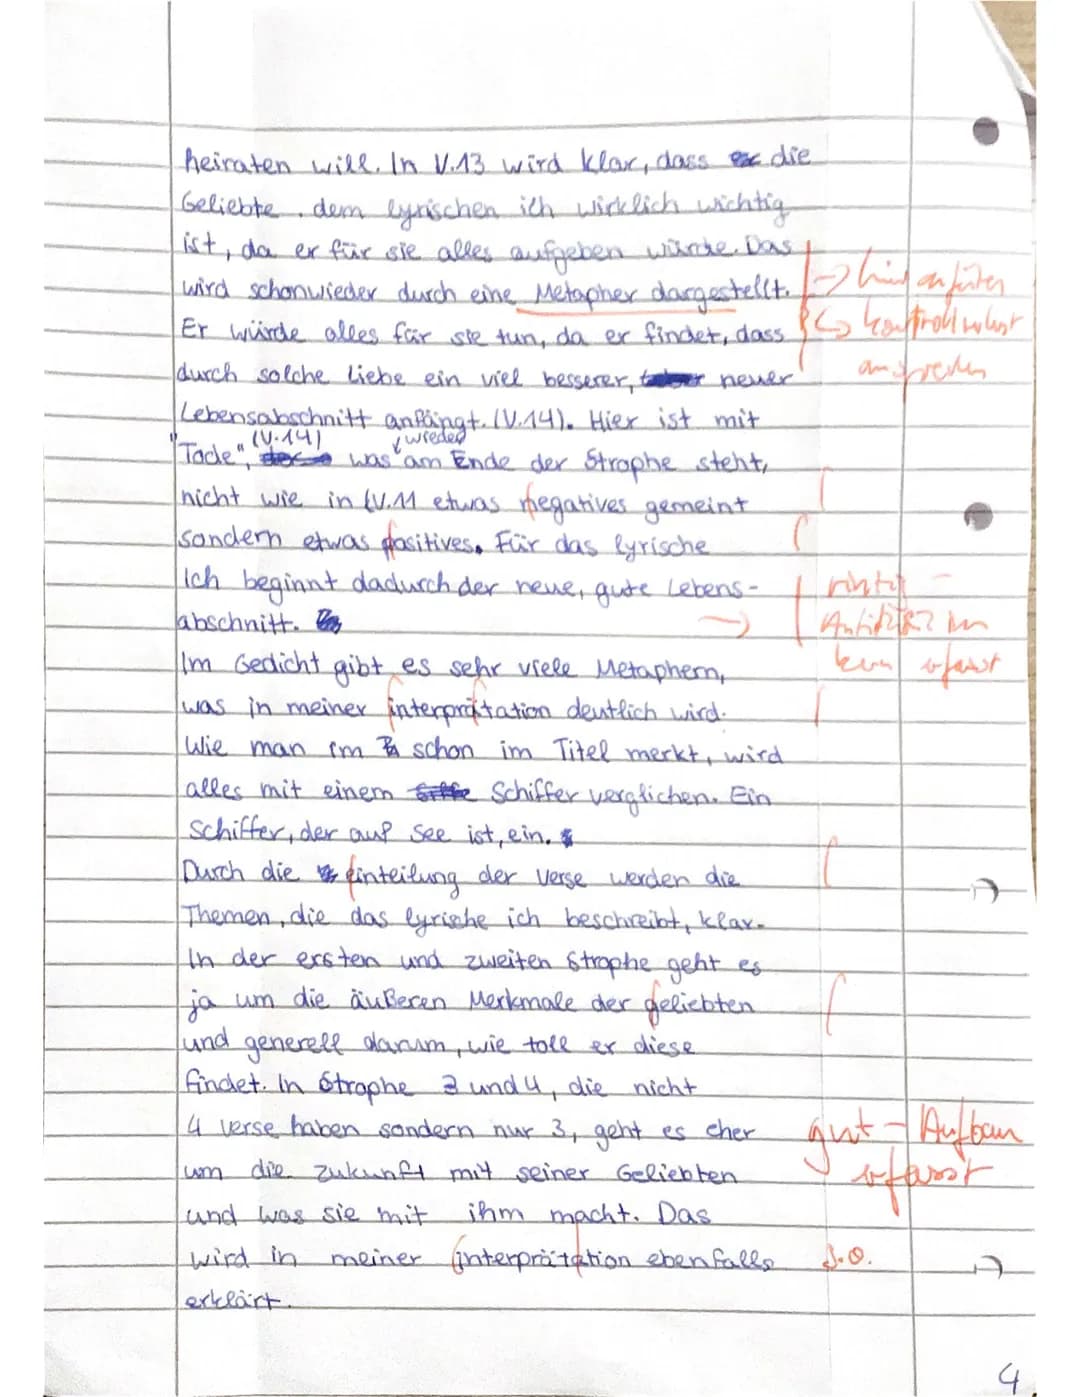 heiraten will. In V.13 wird klar, dass die
Geliebte dem lyrischen ich wirklich wichtig
ist, da er für sie alles aufgeben würde. Das
wird schonwieder durch eine Metapher dargestellt.
Er würde alles für sie tun, da er findet, dass
durch solche Liebe ein viel besserer, neuer
Lebensabschnitt anfängt. (V.14). Hier ist mit
(V.14) wieder
"Tode", was am Ende der Strophe steht,
nicht wie in (V.11 etwas negatives gemeint
sondern etwas positives. Für das lyrische
Ich beginnt dadurch der neue, gute Lebens-
abschnitt.
Im Gedicht gibt es sehr viele Metaphern,
was in meiner interprätation deutlich wird.
Wie man im schon im Titel merkt, wird
alles mit einem Schiffer verglichen. Ein
Schiffer, der auf See ist, ein.
Durch die einteilung der Verse werden die
Themen, die das lyrishe ich beschreibt, klar.
In der ersten und zweiten Strophe geht es
ja um die äußeren Merkmale der geliebten
und generell darum, wie toll er diese
findet. In Strophe 3 und 4, die nicht
4 verse haben sondern nur 3, geht es eher
um die zukunft mit seiner Geliebten
und was sie mit ihm macht. Das
wird in meiner interprätation ebenfalls
erklärt.
-> anführen
Kontrollverlust
ansprechen
richtig -
Antithese? im
Kern erfasst
gut - Aufbau
erfasst
s.o.
4